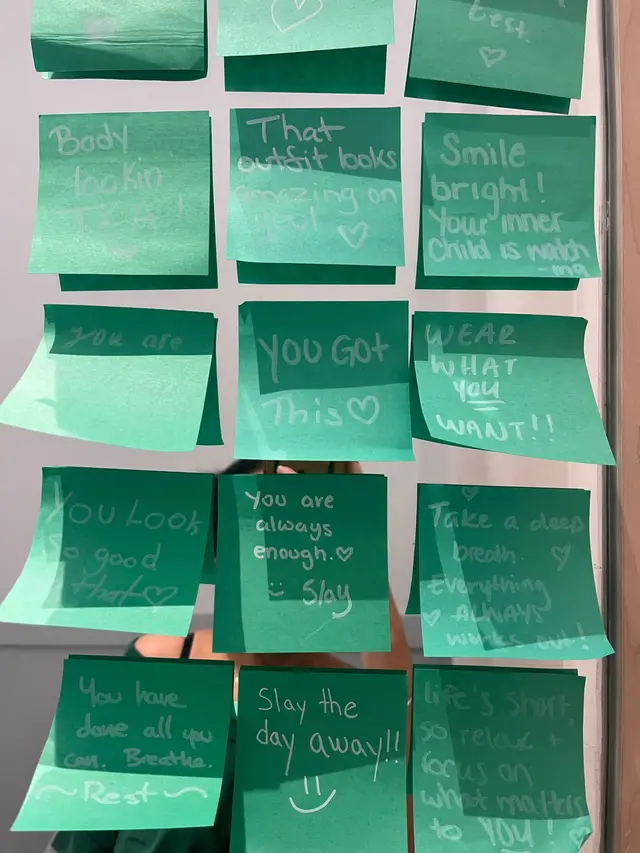 test.
Body
lookin
TEA!
That
outfit looks
amazing on
you!
Smile
bright!
Your inner
Child is watch
-ing
you are
YOU GOT
This
WEAR
WHAT
YOU
WANT!!
YOU LOOK
so good
You are
always
enough.
Slay
Take a deep
breath.
Everything
ALWAYS
works out!
You have
done all you
can. Breathe.
~Rest~
Slay the
day away!!
life's short,
so relax +
focus on
what matters
to YOU!